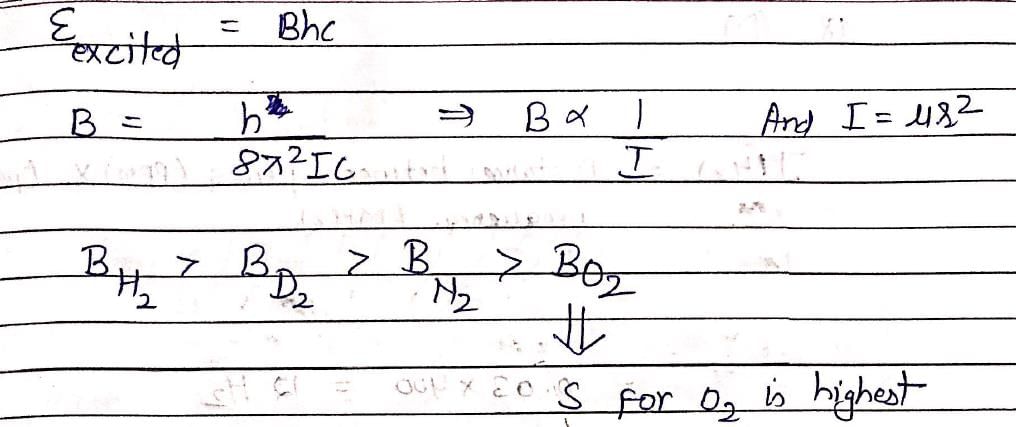 Ɛ excited = Bhc
B = h / 8π²IC ⇒ B α 1 / I And I = μr²
B H₂ > B D₂ > B N₂ > B O₂
⇓
S for O₂ is highest